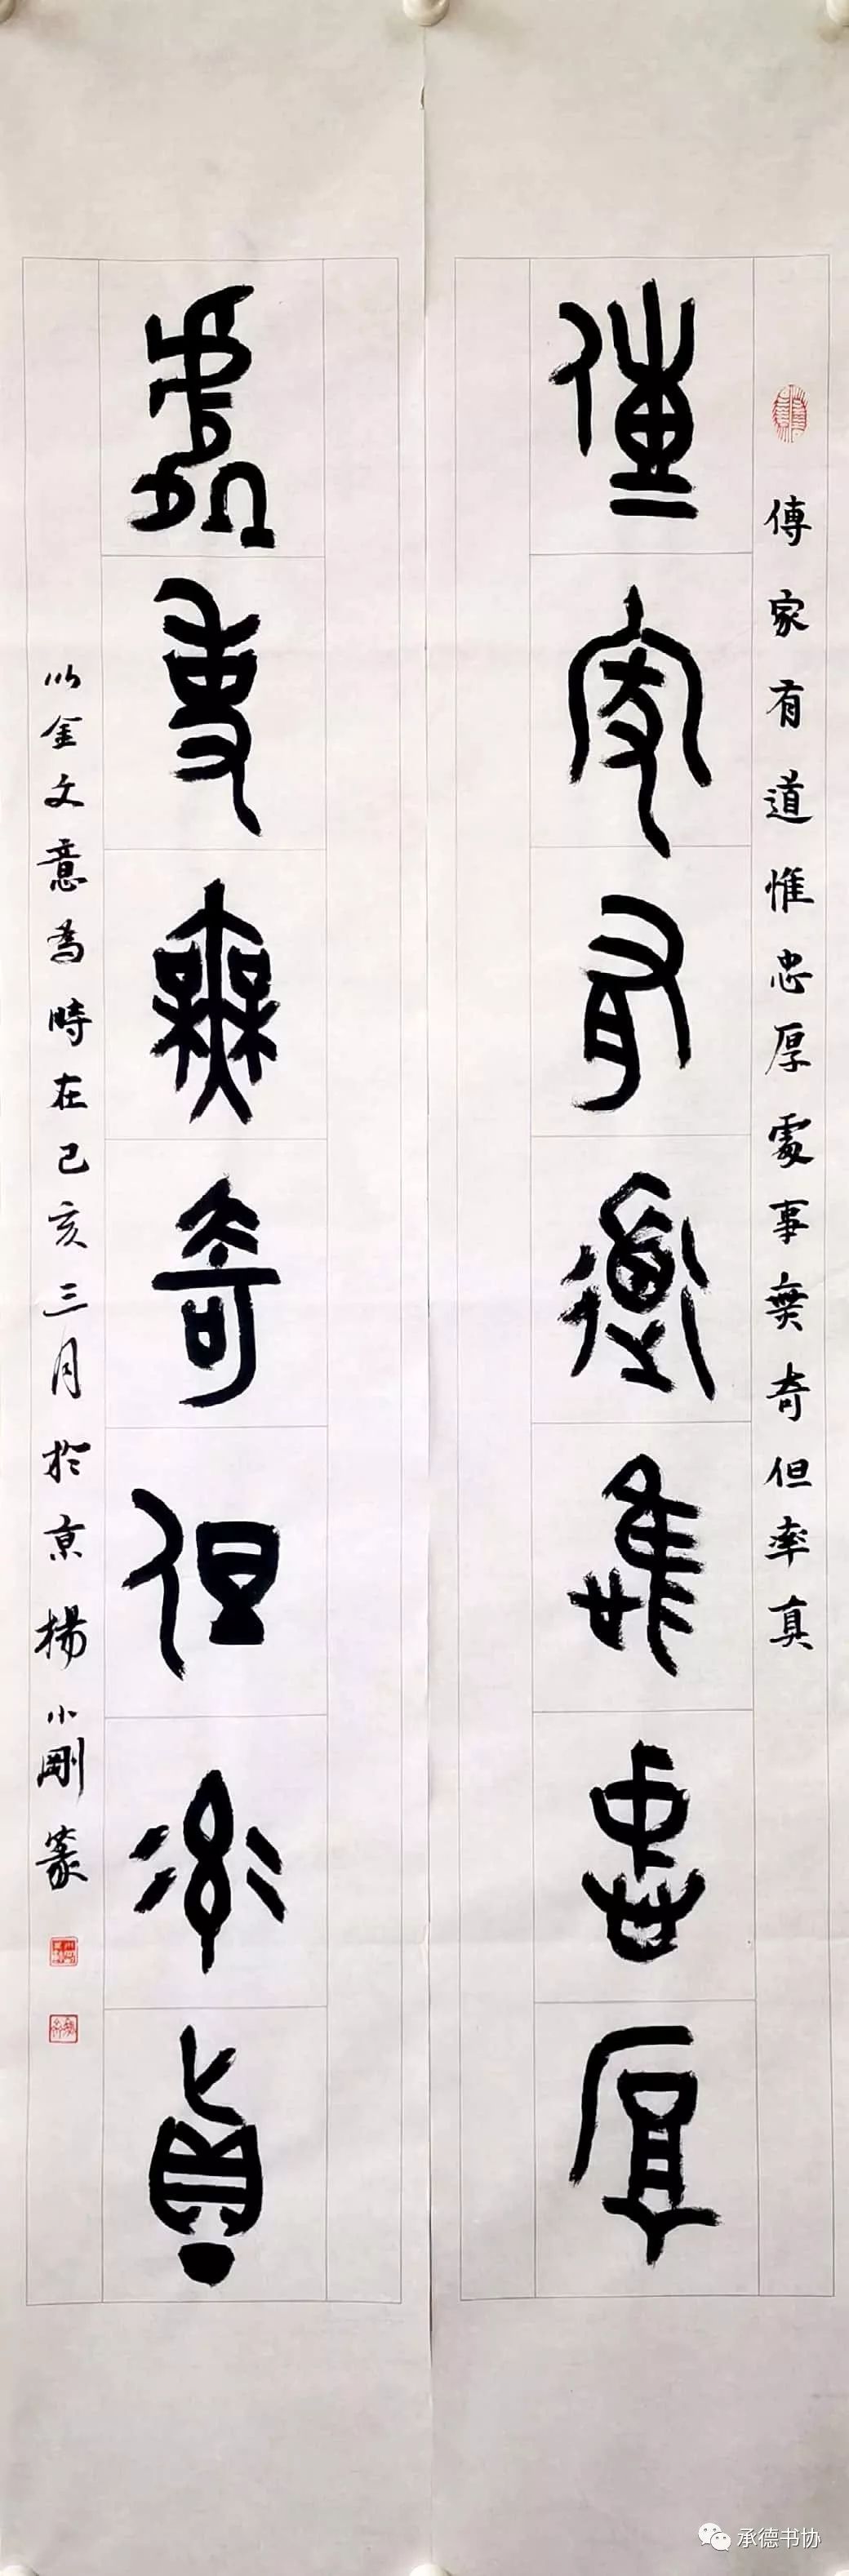 傳家有道惟忠厚處事無奇但率真
傳家有道惟忠厚
處事無奇但率真
以金文意為時在己亥三月於京楊小剛篆
承德书协